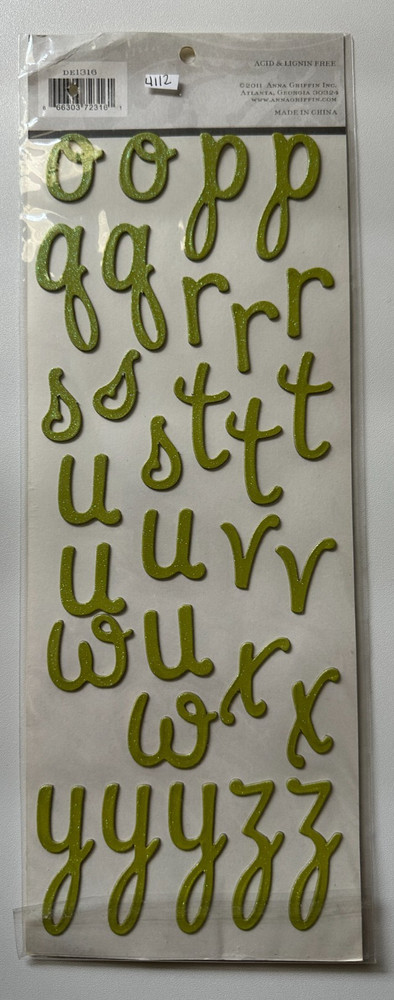 DE1316
8 66303 72316 1
4112
ACID & LIGNIN FREE
©2011 ANNA GRIFFIN INC.
ATLANTA, GEORGIA 30324
WWW.ANNAGRIFFIN.COM
MADE IN CHINA
o o p p
q q r r r
s s t t t
s
u u v v
u
w u x x
w
y y y z z